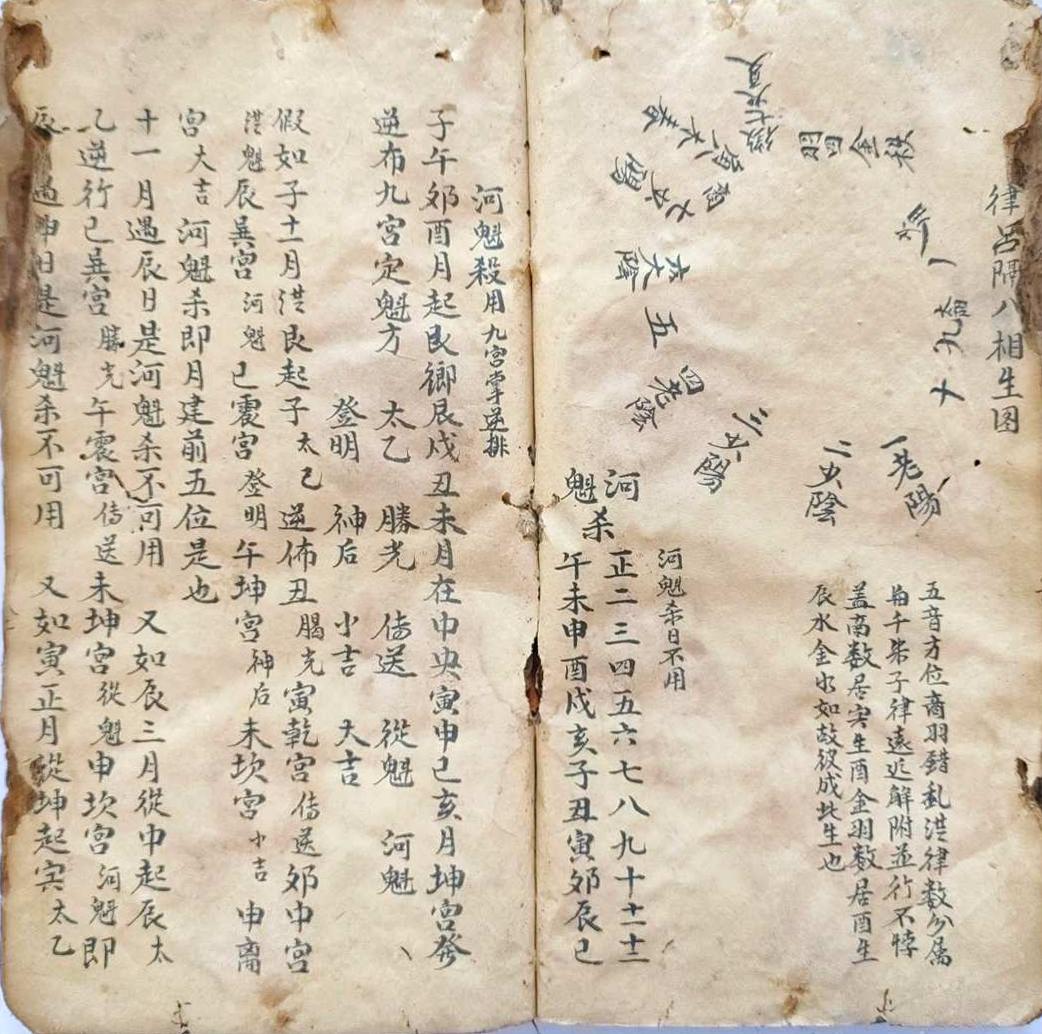 律呂隔八相生图
五音方位商羽錯亂洪律数分属
每千柴子律遠近解附並行不悖
盖商数居宲生酉金羽数居酉生
辰水金水如故彼成此生也
一老陽
二少陰
三少陽
四老陰
五
六太陰
十九
羽四金
河魁杀日不用
河魁杀
正二三四五六七八九十十一十二
午未申酉戌亥子丑寅郊辰巳
河魁殺用九宮掌逆排
子午郊酉月起艮鄉辰戌丑未月在中央寅申巳亥月坤宮發
逆布九宮定魁方 太乙 勝光 传送 從魁 河魁
登明 神后 小吉 大吉
假如子十一月洪艮起子太乙逆佈丑勝光寅乾宮传送郊中宮
洪魁辰巽宮河魁巳震宮登明午坤宮神后未坎宮小吉申离
宮大吉河魁杀即月建前五位是也
十一月遇辰日是河魁杀不可用 又如辰三月從中起辰太
乙逆行巳巽宮勝光午震宮传送未坤宮從魁申坎宮河魁即
辰遇申日是河魁杀不可用 又如寅正月從坤起宲太乙